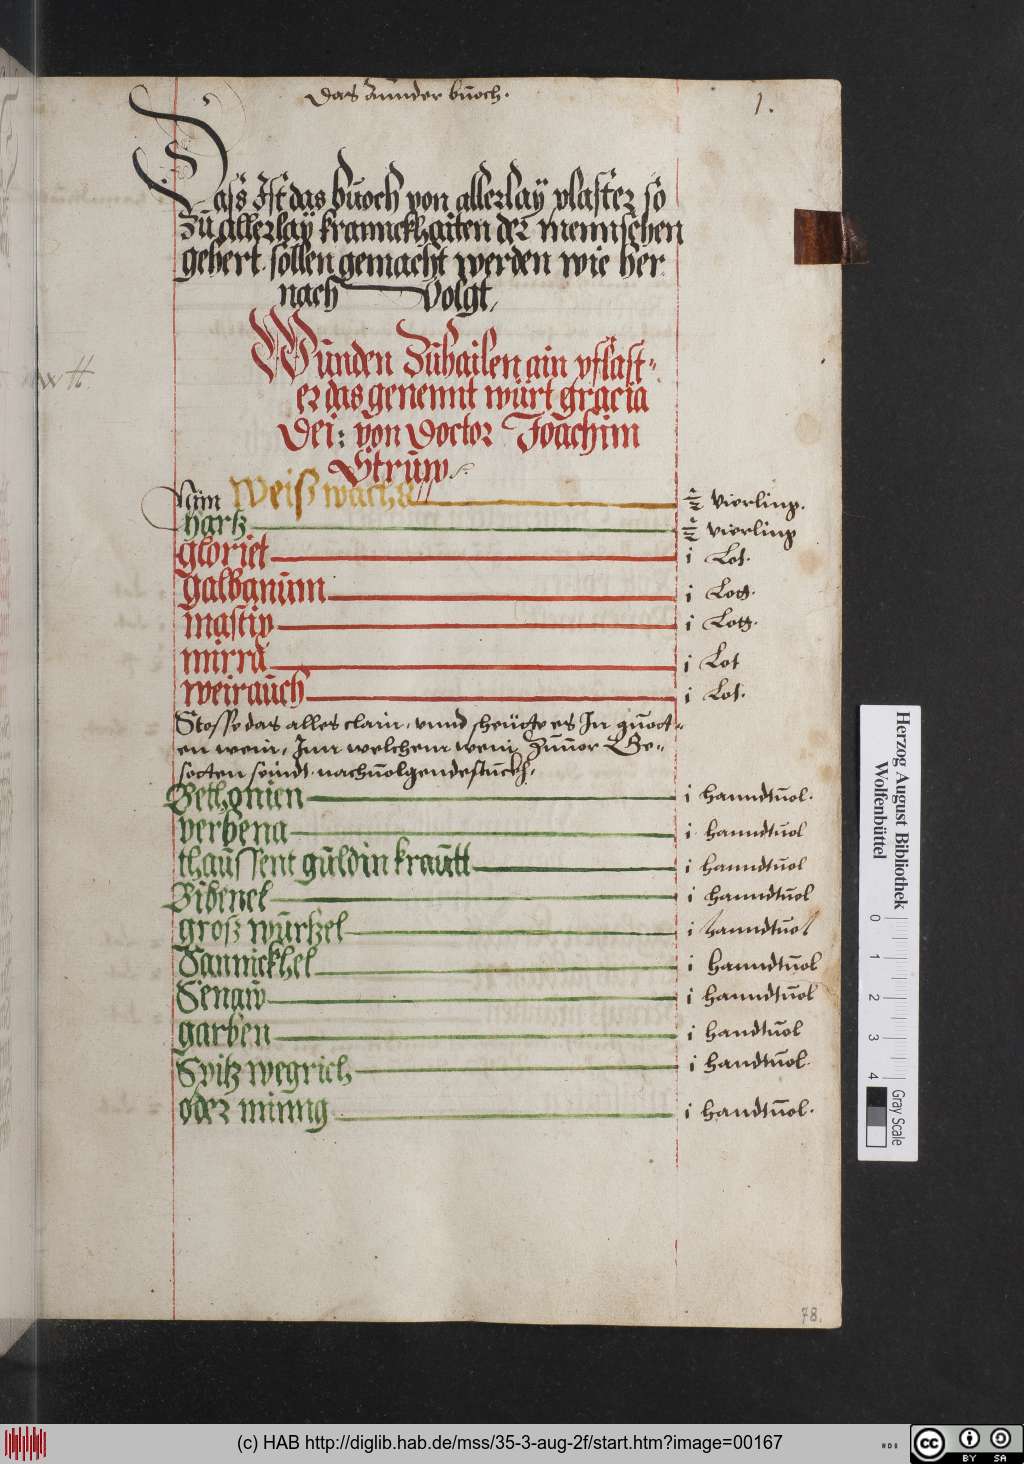 Das annder bůoch.
1.
Dass Ist das bůoch von allerlaÿ plaster so
Zů allerlaÿ krannckhaiten der mennschen
gehert. sollen gemacht werden wie her
nach volgt,
Wůnden Zůhailen ain pflast-
er das genennt würt gracia
Dei: von Doctor Joachim
Strůw
Nim Weiß wachs ½ vierling.
hartz ½ vierling
gloriet i Lot.
Galbanům i Lott.
mastix i Lott.
mirra i Lot
weiraůch i Lot.
Stosse das alles clain, vnnd scheütt es In gůott-
en wein, Inn welchem wein Zůuor Ge-
sotten seindt nachůolgende stůckh,
Bethonien i hanndtůol.
verbena i hanndtůol
thaůssent gůldin kraůtt i hanndtůol
Bibenel i hanndtůol
groß wůrtzel i hanndtůol
Sannickhel i hanndtůol
Senaw i hanndtůol
garben i handtůol
Spitz wegrich i handtůol.
oder minng i handtůol.
78.
Herzog August Bibliothek
Wolfenbüttel
0 1 2 3 4
Gray Scale
(c) HAB http://diglib.hab.de/mss/35-3-aug-2f/start.htm?image=00167
cc BY SA